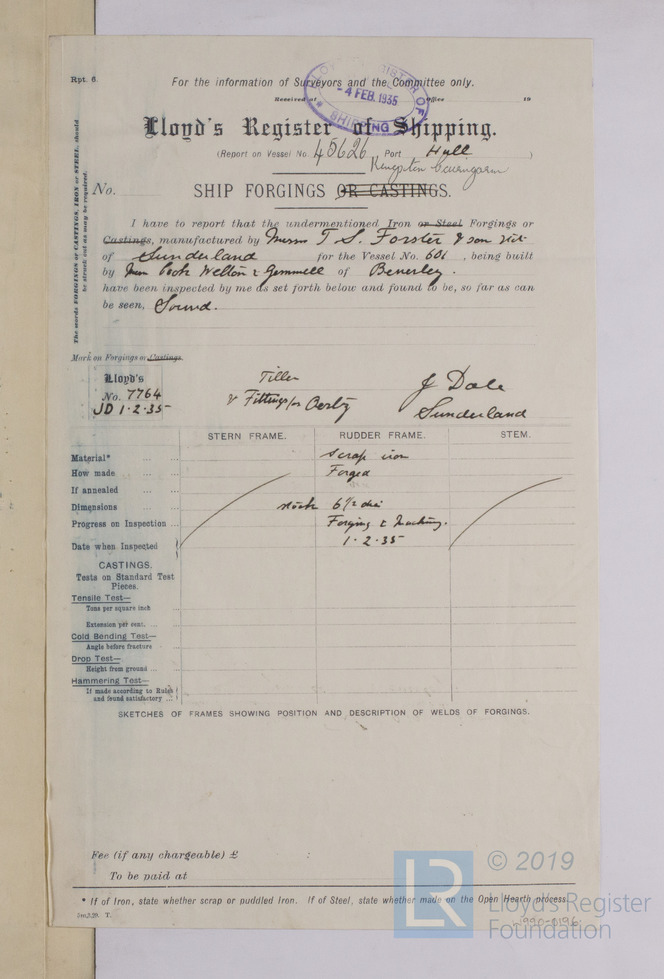 Rpt. 6.
For the information of Surveyors and the Committee only.
Received at
Office
19
LLOYD'S REGISTER OF SHIPPING
- 4 FEB. 1935
Lloyd's Register of Shipping.
(Report on Vessel No. 45626 Port Hull )
Kempton Cairngorm
No. SHIP FORGINGS OR CASTINGS.
The words FORGINGS or CASTINGS, IRON or STEEL, should
be struck out as may be required.
I have to report that the undermentioned Iron or Steel Forgings or
Castings, manufactured by Messrs T. S. Forster & Son
of Sunderland for the Vessel No. 601, being built
by Cook Welton & Gemmell of Beverley.
have been inspected by me as set forth below and found to be, so far as can
be seen, Sound.
Mark on Forgings or Castings.
Lloyd's
No. 7764
JD 1·2·35
Tiller
& Fittings for
J Dale
Sunderland
STERN FRAME. RUDDER FRAME. STEM.
Material* ... ... scrap iron
How made ... ... Forged
If annealed ... ...
Dimensions ... ... stock 6½ dia
Progress on Inspection ... Forging & Machining.
Date when Inspected 1·2·35
CASTINGS.
Tests on Standard Test
Pieces.
Tensile Test—
Tons per square inch ...
Extension per cent. ... ...
Cold Bending Test—
Angle before fracture ...
Drop Test—
Height from ground ... ...
Hammering Test—
If made according to Rules
and found satisfactory ...
SKETCHES OF FRAMES SHOWING POSITION AND DESCRIPTION OF WELDS OF FORGINGS.
Fee (if any chargeable) £ :
To be paid at
* If of Iron, state whether scrap or puddled Iron. If of Steel, state whether made on the Open Hearth process.
LR
© 2019
Lloyd's Register
Foundation